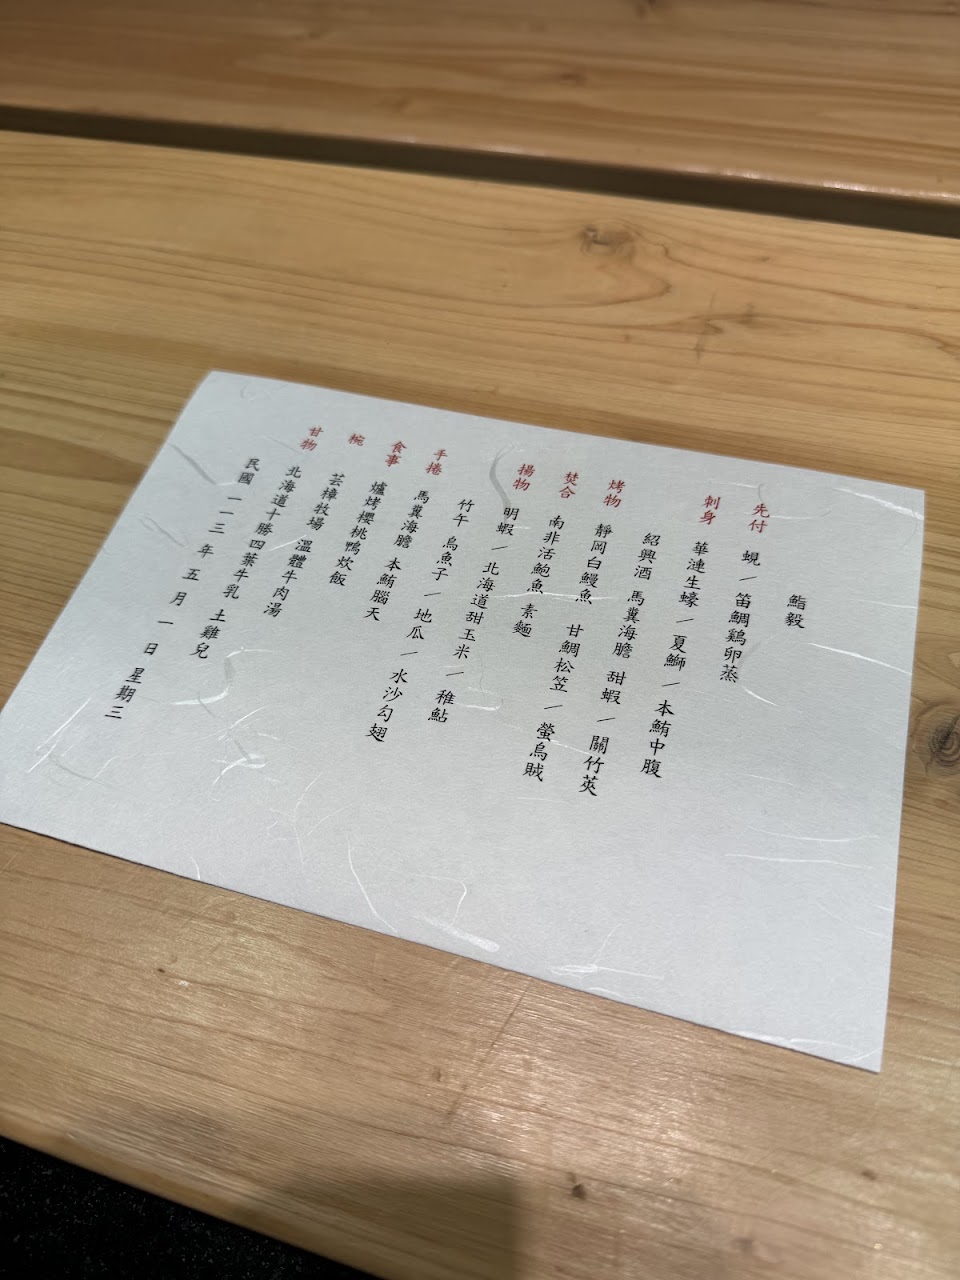 鮨毅
先付 蜆/笛鯛鷄卵蒸
刺身 華漣生蠔/夏鰤/本鮪中腹
紹興酒 馬糞海膽 甜蝦/關竹莢
烤物 靜岡白鰻魚 甘鯛松笠/螢烏賊
焚合 南非活鮑魚 素麵
揚物 明蝦/北海道甜玉米/稚鮎
竹午 烏魚子/地瓜/水沙勾翅
手捲 馬糞海膽 本鮪腦天
食事 爐烤櫻桃鴨炊飯
椀 芸樟牧場 溫體牛肉湯
甘物 北海道十勝四葉牛乳 土雞兒
民國一一三年五月一日星期三